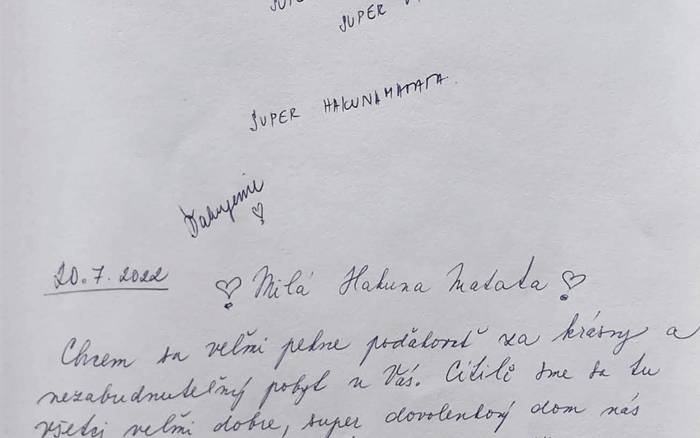 SUPER
SUPER HAKUNAMATATA.
Ďakujeme
20.7.2022
Milá Hakuna Matata
Chcem sa veľmi pekne poďakovať za krásny a
nezabudnuteľný pobyt u Vás. Cítili sme sa tu
všetci veľmi dobre, super dovolenkový dom nás